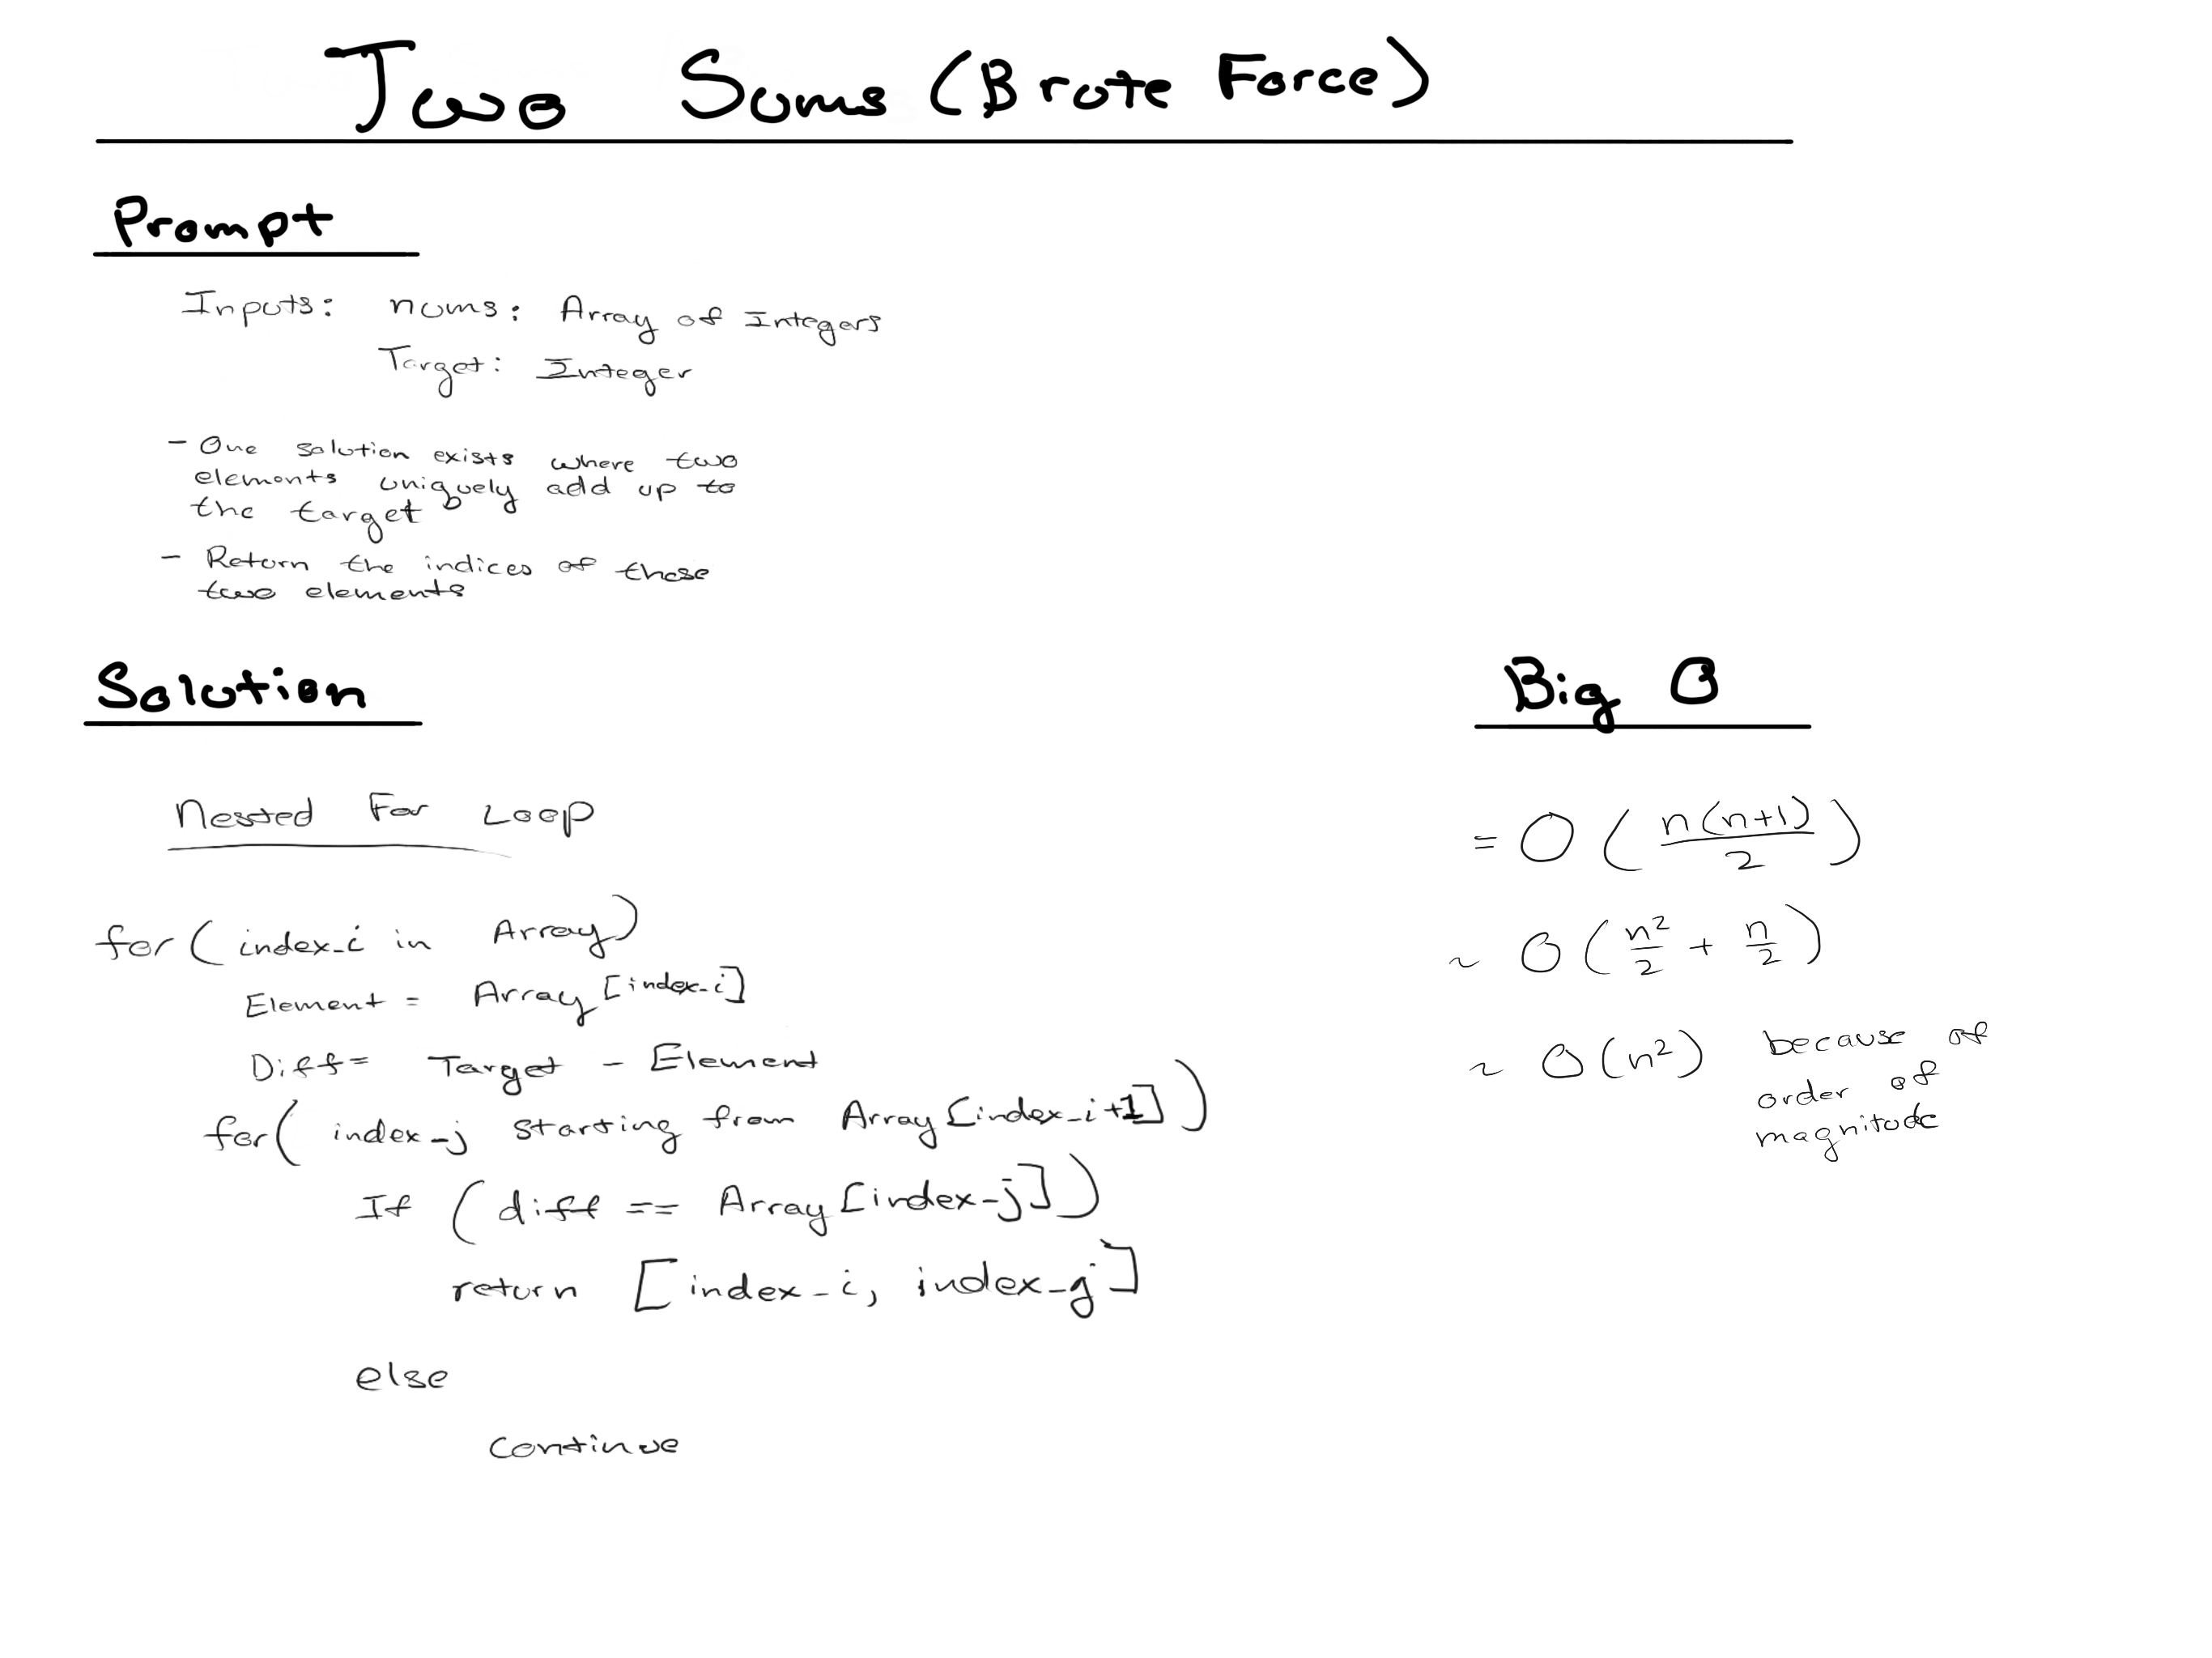 Two Sums (Brute Force)
Prompt
Inputs: nums: Array of Integers
Target: Integer
- One solution exists where two
elements uniquely add up to
the target
- Return the indices of these
two elements
Solution
Nested For Loop
for( index_i in Array)
Element = Array[index_i]
Diff = Target - Element
for( index_j starting from Array[index_i+1])
If (diff == Array[index_j])
return [index_i, index_j]
else
continue
Big O
= O(n(n+1)/2)
~ O(n²/2 + n/2)
~ O(n²) because of
order of
magnitude